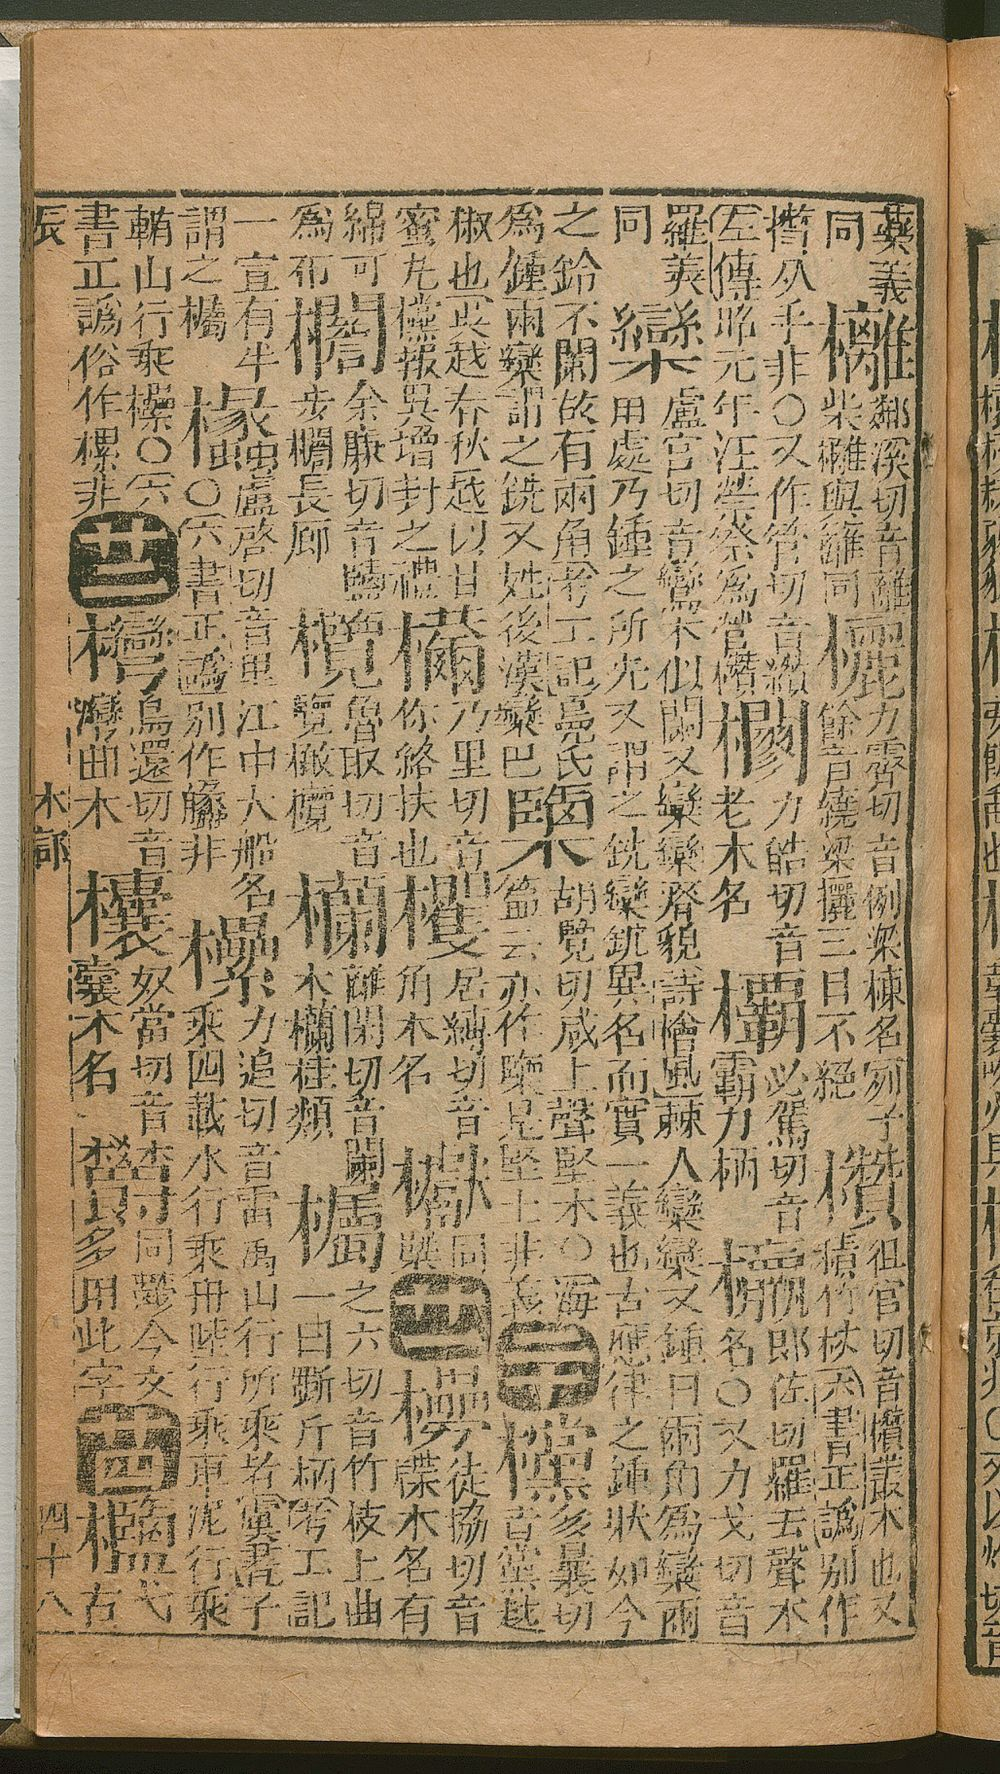 蘗義
同
鄰溪切音離
柴欐與籬同
欐
力霽切音例梁棟名列子
餘音繞梁欐三日不絕
欑
徂官切音欑叢木也又
積竹杖六書正譌別作
攢从手非○又作管切音纘
左傳昭元年汪禜祭爲營欑
力皓切音
老木名
欛
必駕切音
霸刀柄
郎佐切羅去聲木
名○又力戈切音
羅義
同
欒
盧官切音鸞木似闌又欒欒瘠貌詩檜風棘人欒欒又鍾口兩角爲欒兩
用處乃鍾之所先又謂之銑欒銑異名而實一義也古應律之鍾狀如今
之鈴不闌故有兩角考工記鳧氏
爲鍾兩欒謂之銑又姓後漢欒巴
胡覽切咸上聲堅木○海
篇云亦作壏見堅土非義
二十
欓
多曩切
音黨茱
椒也吳越春秋越以甘
蜜丸欓報吳增封之禮
檷
乃里切音
你絡扶也
欔
居縛切音
角木名
同
廿一
徒協切音
牒木名有
綿可
爲布
櫩
余廉切音鹽
步櫩長廊
欖
魯敢切音
覽橄欖
欄
離閑切音闌
木欄桂類
欘
之六切音竹枝上曲
一曰斷斤柄考工記
一宣有半
謂之欘
欚
盧啓切音里江中大船名
○六書正譌別作蠡非
欙
力追切音雷禹山行所乘者虞書予
乘四載水行乘舟陸行乘車泥行乘
輴山行乘欙○六
書正譌俗作樏非
烏還切音
灣曲木
欜
奴當切音
囊木名
同鬱今文
多用此字
弋
古
辰 木部 四十八